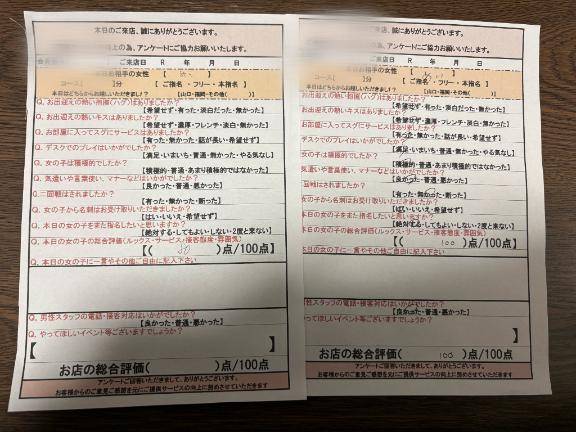 本日のご来店、誠にありがとうございます。
上の為、アンケートにご協力お願いいたします。
ご来店日 R 年 月 日
本日お相手の女性 【 】
コース【 】分 【 ご指名 ・ フリー ・ 本指名 】
本日はどちらからお越しいただきました！？ 【山口・福岡・その他( )】
Q. お出迎えの熱い抱擁(ハグ)はありましたか？
【希望せず・有った・淡白だった・無かった】
Q. お出迎えの熱いキスはありましたか？
【希望せず・濃厚・フレンチ・淡白・無かった】
Q. お部屋に入ってスグにサービスはありましたか？
【有った・無かった・話が長い・希望せず】
Q. デスクでのプレイはいかがでしたか？
【満足・いまいち・普通・無かった・やる気なし】
Q. 女の子は積極的でしたか？
【積極的・普通・あまり積極的ではなかった】
Q. 気遣いや言葉使い、マナーなどはいかがでしたか？
【良かった・普通・悪かった】
Q. 二回戦はされましたか？
【有った・無かった・断った】
Q. 女の子から名刺はお受け取りいただきましたか？
【はい・いいえ・希望せず】
Q. 本日の女の子をまた指名したいと思いますか？
【絶対する・してもよい・しない・2度と来ない】
Q. 本日の女の子の総合評価(ルックス・サービス・接客態度・雰囲気)
【( )点/100点】
Q. 本日の女の子に一言やその他ご自由に記入下さい
Q. 男性スタッフの電話・接客対応はいかがでしたか？
【良かった・普通・悪かった】
Q. やってほしいイベント等ございますでしょうか？
【 】
お店の総合評価( )点/100点
アンケートご回答いただきまして、ありがとうございます。
お客様からのご意見ご感想を元にご提供サービスの向上に努めさせていただきます
本日のご来店、誠にありがとうございます。
の為、アンケートにご協力お願いいたします。
ご来店日 R 年 月 日
本日お相手の女性 【 】
コース【 】分 【 ご指名 ・ フリー ・ 本指名 】
本日はどちらからお越しいただきました！？ 【山口・福岡・その他( )】
お出迎えの熱い抱擁(ハグ)はありましたか？
【希望せず・有った・淡白だった・無かった】
お出迎えの熱いキスはありましたか？
【希望せず・濃厚・フレンチ・淡白・無かった】
お部屋に入ってスグにサービスはありましたか？
【有った・無かった・話が長い・希望せず】
デスクでのプレイはいかがでしたか？
【満足・いまいち・普通・無かった・やる気なし】
女の子は積極的でしたか？
【積極的・普通・あまり積極的ではなかった】
気遣いや言葉使い、マナーなどはいかがでしたか？
【良かった・普通・悪かった】
回戦はされましたか？
【有った・無かった・断った】
女の子から名刺はお受け取りいただきましたか？
【はい・いいえ・希望せず】
本日の女の子をまた指名したいと思いますか？
【絶対する・してもよい・しない・2度と来ない】
本日の女の子の総合評価(ルックス・サービス・接客態度・雰囲気)
【( 100 )点/100点】
本日の女の子に一言やその他ご自由に記入下さい
男性スタッフの電話・接客対応はいかがでしたか？
【良かった・普通・悪かった】
やってほしいイベント等ございますでしょうか？
】
お店の総合評価( 100 )点/100点
アンケートご回答いただきまして、ありがとうございます。
お客様からのご意見ご感想を元にご提供サービスの向上に努めさせていただきます